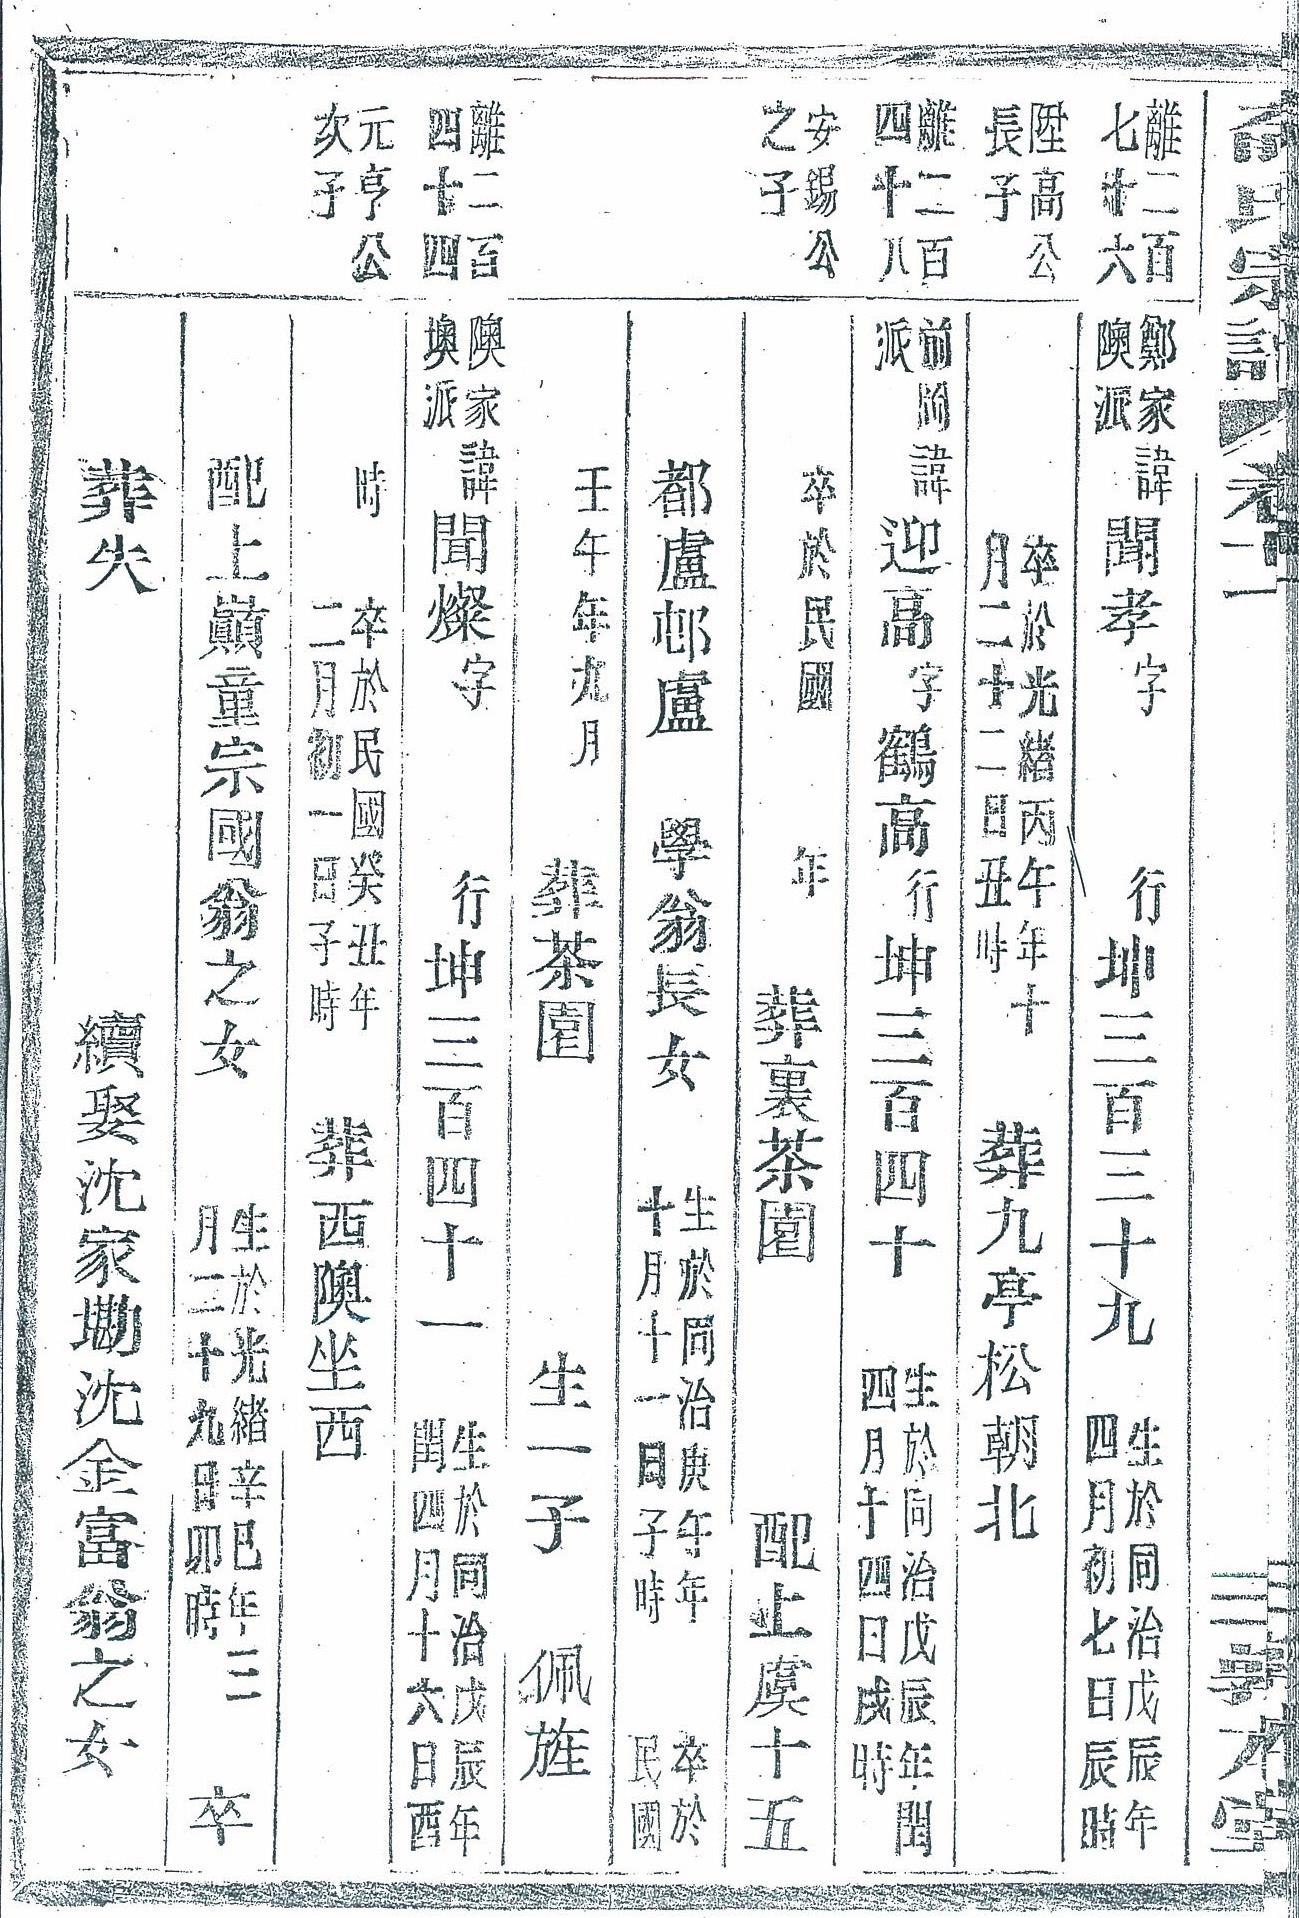 氏宗譜 卷十二
離二百
七十六
鄭家
隩派
諱聞孝字 行坤三百三十九
生於同治戊辰年
四月初七日辰時
陞高公
長子
卒於光緒丙午年十
月二十二日丑時
葬九亭松朝北
離二百
四十八
前岡
派
諱迎高字鶴高行坤三百四十
生於同治戊辰年閏
四月十四日戌時
安錫公
之子
卒於民國 年 葬裏茶園 配上虞十五
都盧邨盧 學翁長女
生於同治庚午年
十月十一日子時
卒於
民國
壬午年九月 葬茶園 生一子 佩旌
離二百
四十四
隩家
墺派
諱聞燦字 行坤三百四十一
生於同治戊辰年
閏四月十六日酉
元亨公
次子
時
卒於民國癸丑年
二月初一日子時
葬西隩坐西
配上巔童宗國翁之女
生於光緒辛巳年三
月二十九日卯時
卒
葬失 續娶沈家墈沈金富翁之女